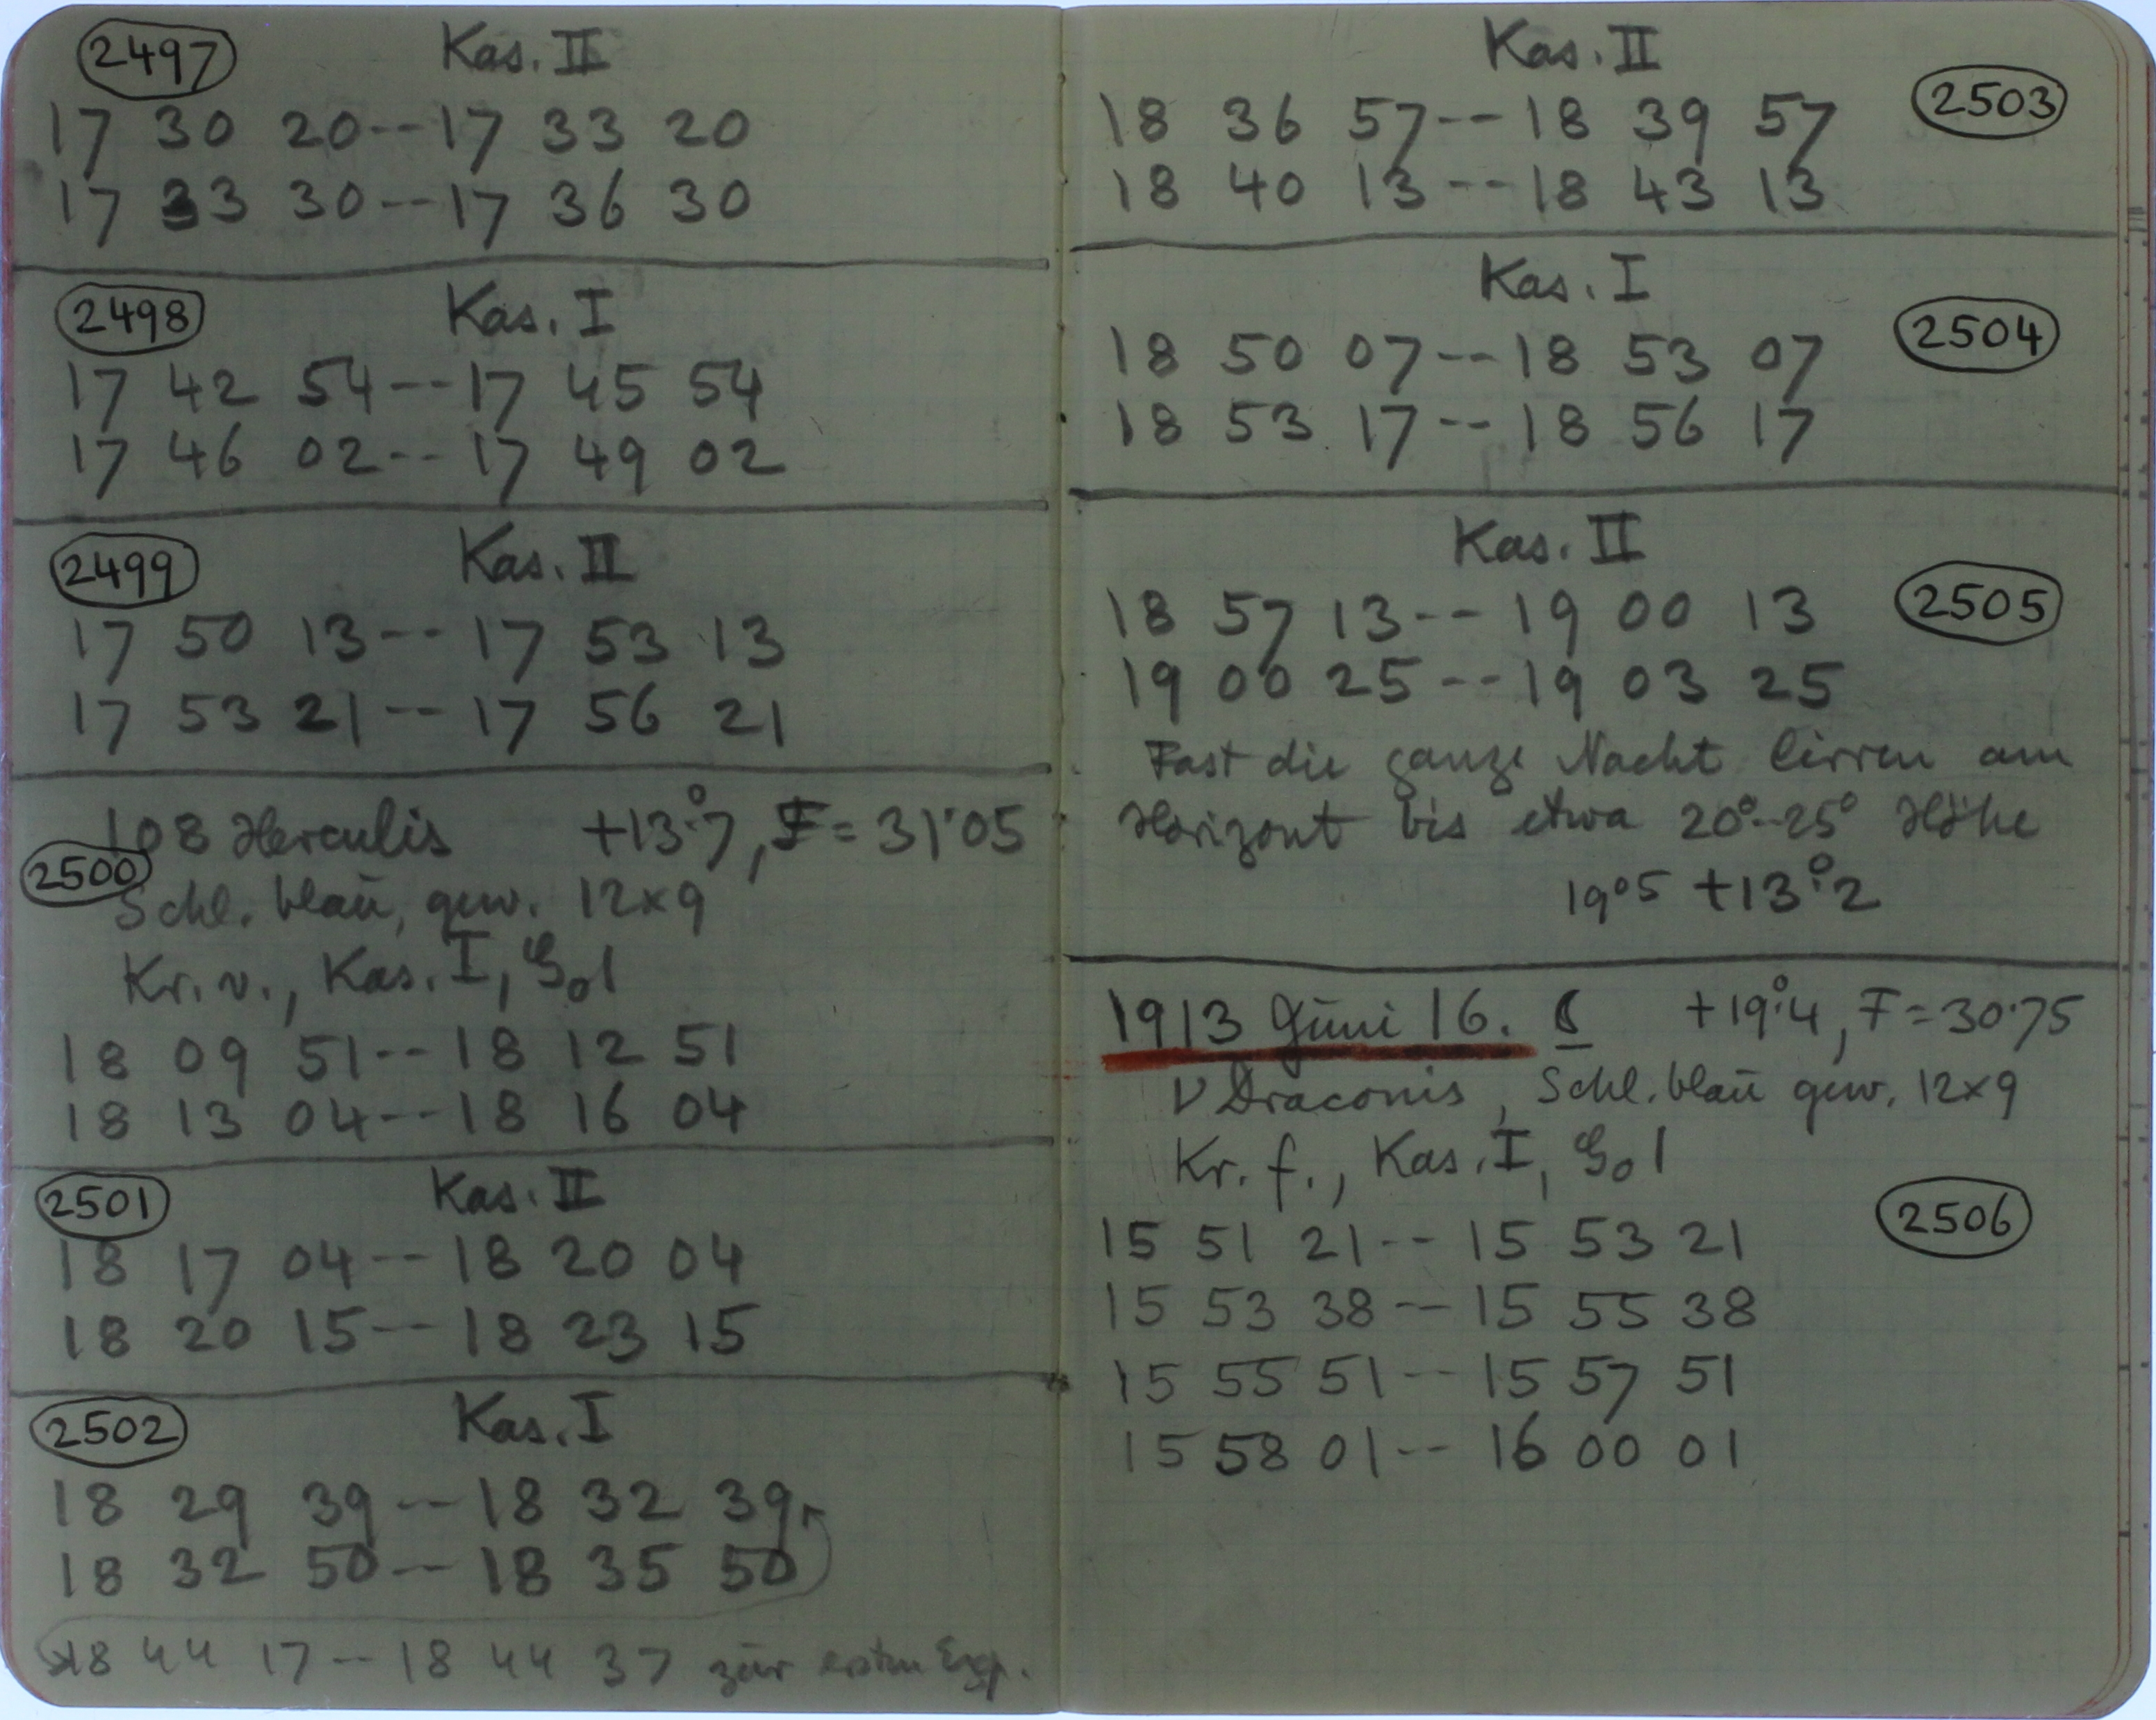 2497 Kas. II
17 30 20--17 33 20
17 33 30--17 36 30
2498 Kas. I
17 42 54--17 45 54
17 46 02--17 49 02
2499 Kas. II
17 50 13--17 53 13
17 53 21--17 56 21
108 Herculis +13°.7, F = 31.05
2500
Schl. blau, gew. 12x9
Kr. v., Kas. I,
18 09 51--18 12 51
18 13 04--18 16 04
2501 Kas. II
18 17 04--18 20 04
18 20 15--18 23 15
2502 Kas. I
18 29 39--18 32 39
18 32 50--18 35 50
18 44 17--18 44 37 zur ersten Exp.
Kas. II
18 36 57--18 39 57 2503
18 40 13--18 43 13
Kas. I
18 50 07--18 53 07 2504
18 53 17--18 56 17
Kas. II
18 57 13--19 00 13 2505
19 00 25--19 03 25
Fast die ganze Nacht Cirren am
Horizont bis etwa 20°-25° Höhe
+13°.2
1913 Juni 16. +19°.4, F = 30.75
ν Draconis, Schl. blau gew. 12x9
Kr. f., Kas. I,
2506
15 51 21--15 53 21
15 53 38--15 55 38
15 55 51--15 57 51
15 58 01--16 00 01